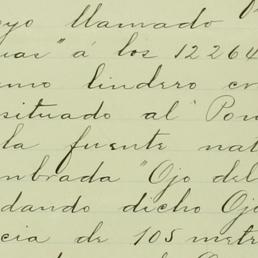 yo llamado
á los 12264
mo lindero
situado al Pon
la fuente nat
mbrada "Ojo del
dando dicho Ojo
cia de 105 metr